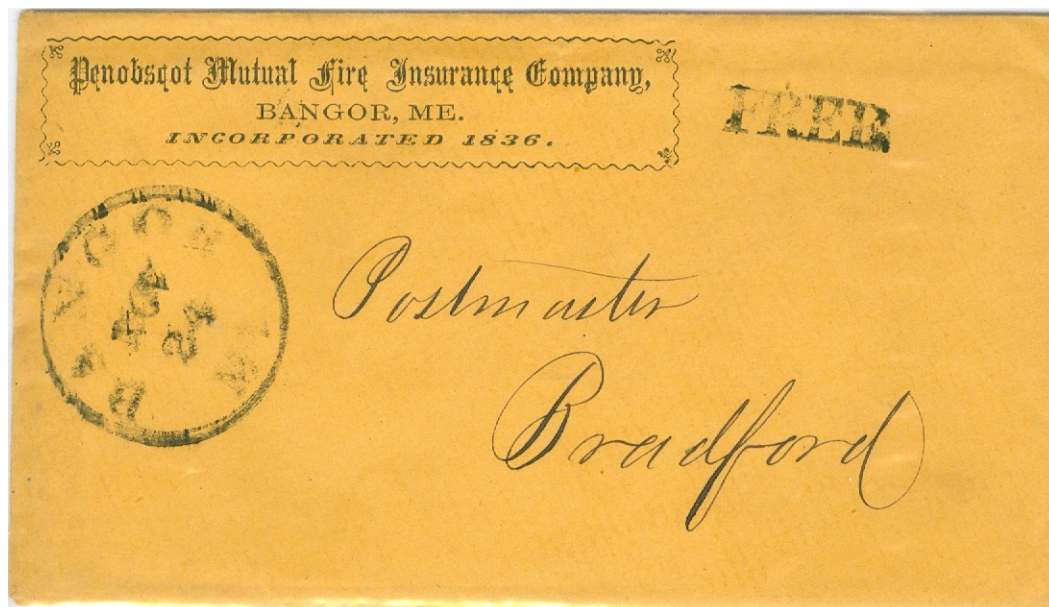 Penobscot Mutual Fire Insurance Company,
BANGOR, ME.
INCORPORATED 1836.
FREE
BANGOR
24
Postmaster
Bradford